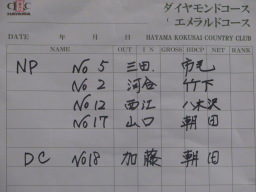 HAYAMA
ダイヤモンドコース
エメラルドコース
DATE 年 月 日 HAYAMA KOKUSAI COUNTRY CLUB
NAME OUT IN GROSS HDCP NET RANK
NP No 5 三田 市毛
No 2 河合 竹下
No 12 西江 八木沢
No 17 山口 朝田
DC No 18 加藤 朝田